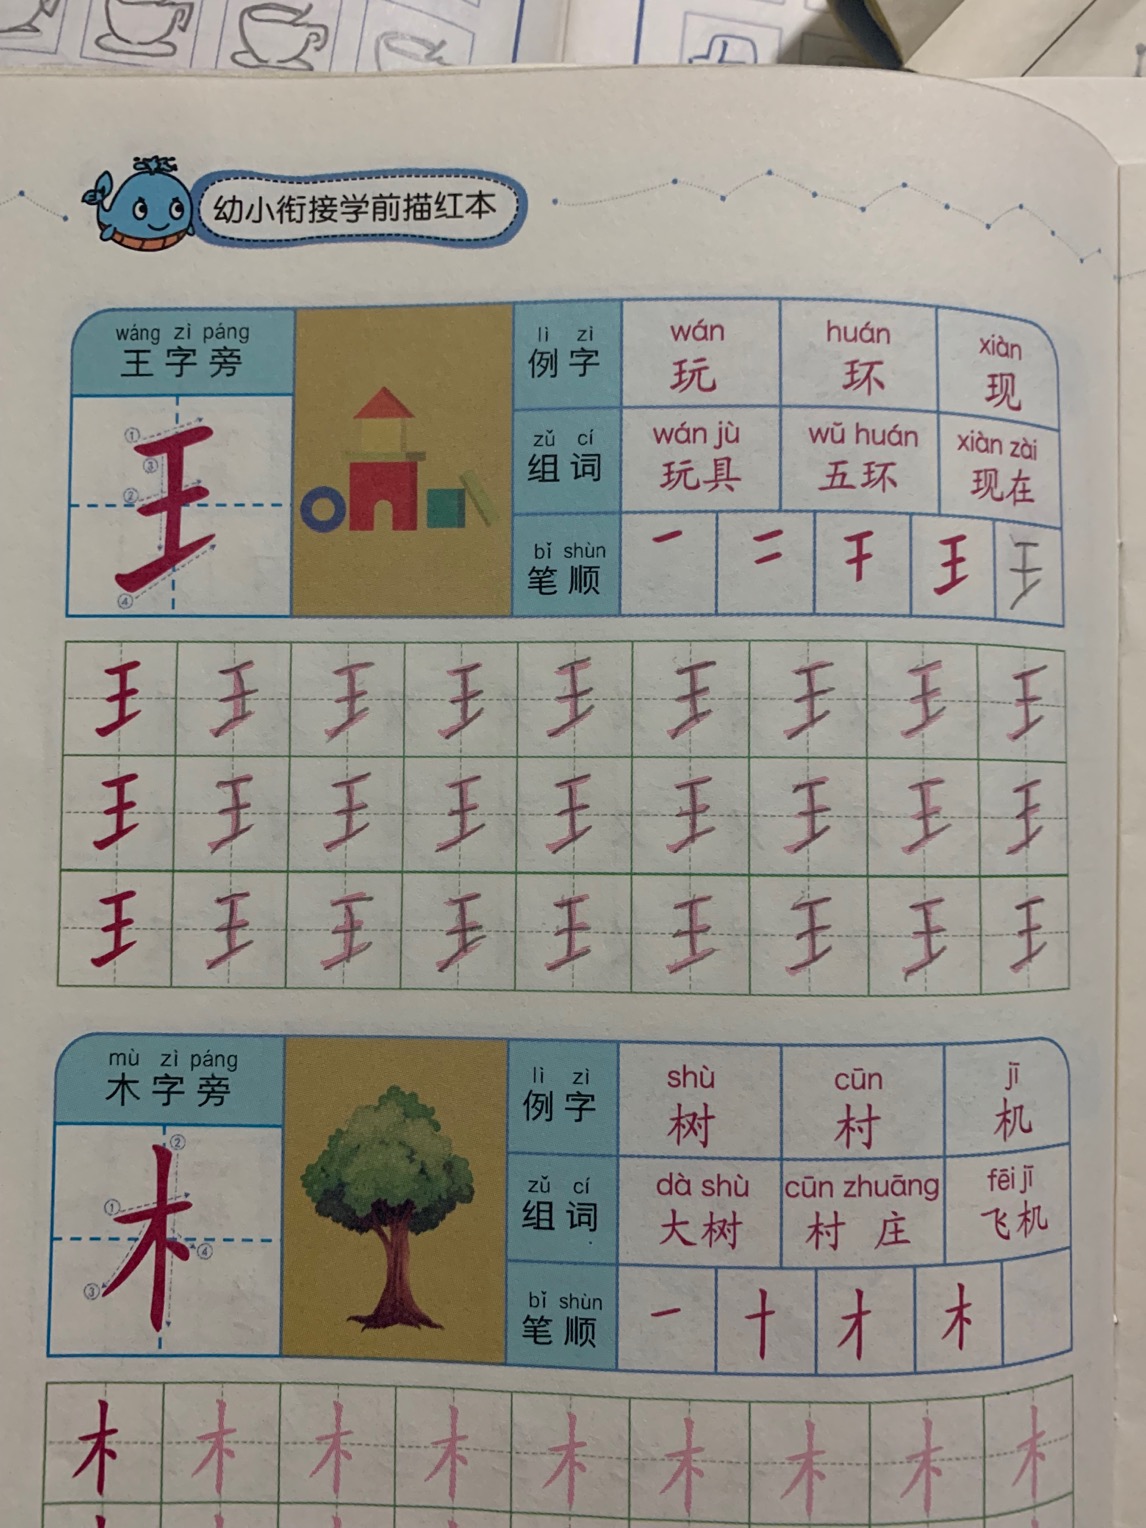 幼小衔接学前描红本
wáng zì páng
王字旁
① ③ ② ④
lì zì
例字
wán huán xiàn
玩 环 现
zǔ cí
组词
wán jù wǔ huán xiàn zài
玩具 五环 现在
bǐ shùn
笔顺
一 二 干 王 王
王 王 王 王 王 王 王 王 王
王 王 王 王 王 王 王 王 王
王 王 王 王 王 王 王 王 王
mù zì páng
木字旁
② ① ④ ③
lì zì
例字
shù cūn jī
树 村 机
zǔ cí
组词
dà shù cūn zhuāng fēi jī
大树 村庄 飞机
bǐ shùn
笔顺
一 十 才 木
木 木 木 木 木 木 木 木 木